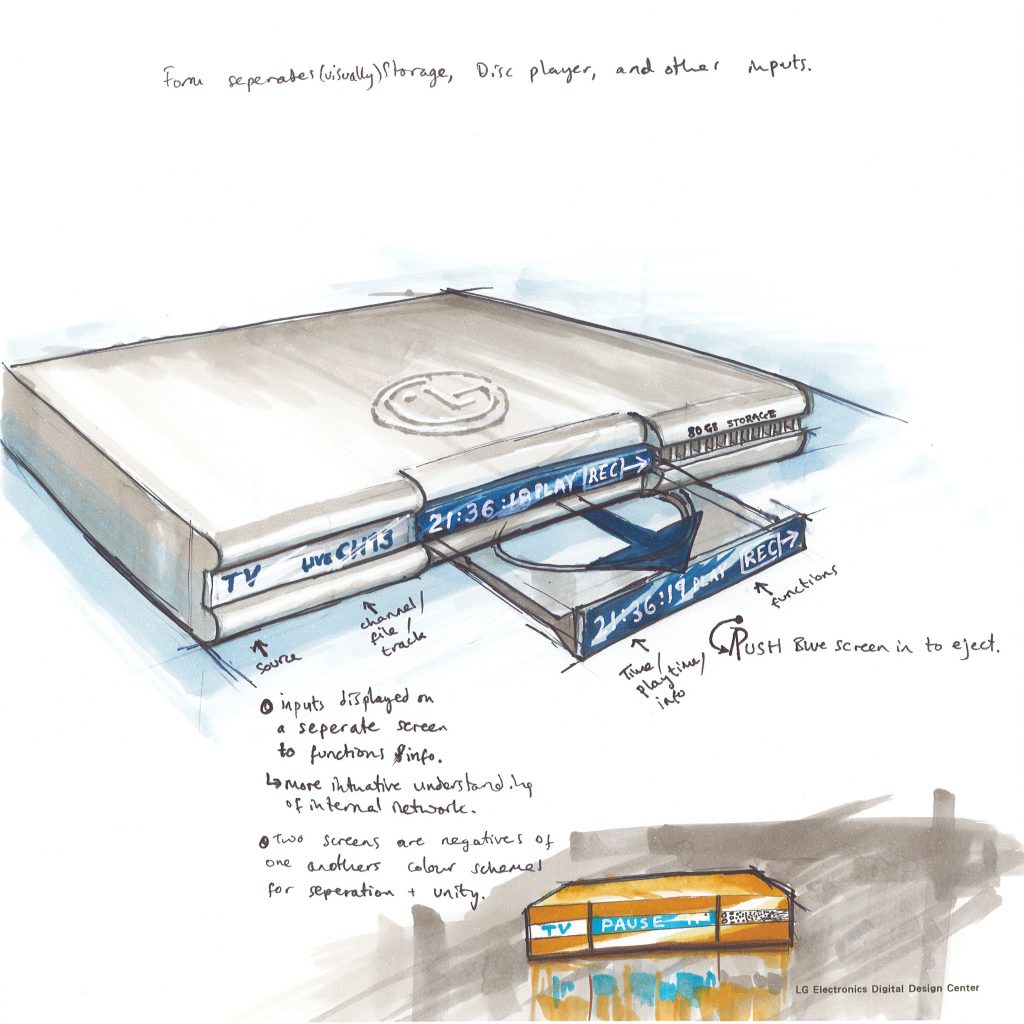 Form seperates (visually) Storage, Disc player, and other inputs.
LG
80 GB STORAGE
21:36:18 PLAY [REC]→
TV LIVE CH13
21:36:19 PLAY [REC]→
↑ functions
↑ channel/
file/
track
↑ source
↑ Time/
playtime/
info
PUSH Blue screen in to eject.
inputs displayed on
a seperate screen
to functions & info.
↳ More intuative understanding
of internal network.
Two screens are negatives of
one anothers colour schemes
for seperation + unity.
TV PAUSE
LG Electronics Digital Design Center